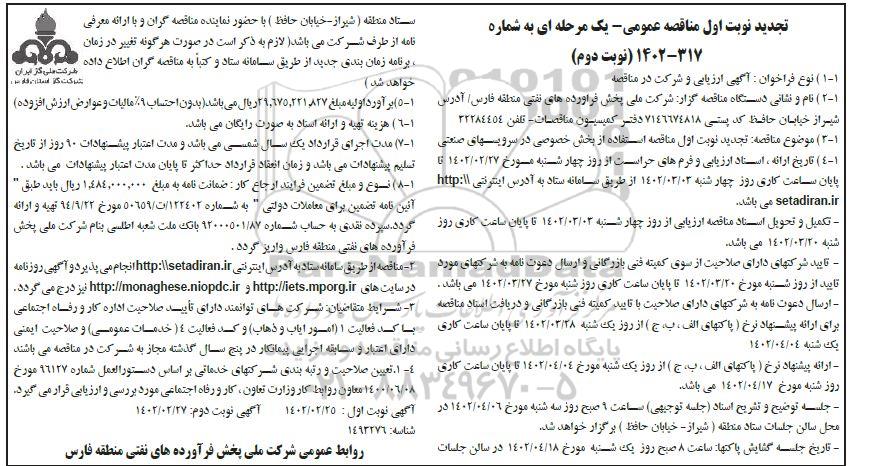 تجدید نوبت اول مناقصه عمومی- یک مرحله ای به شماره
۱۴۰۲-۳۱۷ (نوبت دوم)
۱-۱ ) نوع فراخوان : آگهی ارزیابی و شرکت در مناقصه
۱-۲ ) نام و نشانی دستگاه مناقصه گزار: شرکت ملی پخش فراورده های نفتی منطقه فارس/ آدرس
شیراز خیابان حافظ کد پستی ۷۱۴۶۶۷۴۸۱۸ دفتر کمیسیون مناقصات- تلفن ۳۲۲۸۴۴۵۴
۱-۳ ) موضوع مناقصه: تجدید نوبت اول مناقصه استفاده از بخش خصوصی در سرویسهای صنعتی
۱-۴ ) تاریخ ارائه ، اسناد ارزیابی و فرم های حراست از روز چهار شنبه مورخ ۱۴۰۲/۰۲/۲۷ تا
پایان ساعت کاری روز چهار شنبه ۱۴۰۲/۰۳/۰۳ از طریق سامانه ستاد به آدرس اینترنتی http:\\
setadiran.ir می باشد.
- تکمیل و تحویل اسناد مناقصه ارزیابی از روز چهار شنبه ۱۴۰۲/۰۳/۰۳ تا پایان ساعت کاری روز
شنبه ۱۴۰۲/۰۳/۲۰ می باشد.
- تایید شرکتهای دارای صلاحیت از سوی کمیته فنی بازرگانی و ارسال دعوت نامه به شرکتهای مورد
تایید از روز شنبه مورخ ۱۴۰۲/۰۳/۲۰ تا پایان ساعت کاری روز شنبه مورخ ۱۴۰۲/۰۳/۲۷ می باشد .
- ارسال دعوت نامه به شرکتهای دارای صلاحیت با تایید کمیته فنی بازرگانی و دریافت اسناد مناقصه
برای ارائه پیشنهاد نرخ ( پاکتهای الف ، ب، ج ) از روز یک شنبه ۱۴۰۲/۰۳/۲۸ تا پایان ساعت کاری
یک شنبه ۱۴۰۲/۰۴/۰۴
- ارائه پیشنهاد نرخ ( پاکتهای الف ، ب، ج ) از روز یک شنبه مورخ ۱۴۰۲/۰۴/۰۴ تا پایان ساعت کاری
روز شنبه مورخ ۱۴۰۲/۰۴/۱۷ می باشد.
- جلسه توضیح و تشریح اسناد (جلسه توجیهی) ساعت ۹ صبح روز سه شنبه مورخ ۱۴۰۲/۰۴/۰۶ در
محل سالن جلسات ستاد منطقه ( شیراز- خیابان حافظ ) برگزار خواهد شد.
- تاریخ جلسه گشایش پاکتها: ساعت ۸ صبح روز یک شنبه مورخ ۱۴۰۲/۰۴/۱۸ در سالن جلسات
ستاد منطقه ( شیراز-خیابان حافظ ) با حضور نماینده مناقصه گران و با ارائه معرفی
نامه از طرف شرکت می باشد( لازم به ذکر است در صورت هرگونه تغییر در زمان
، برنامه زمان بندی جدید از طریق سامانه ستاد و کتباً به مناقصه گران اطلاع داده
خواهد شد )
۱-۵) برآورد اولیه مبلغ ۲۹,۶۷۵,۲۲۱,۸۲۷ ریال می باشد(بدون احتساب ۹٪ مالیات و عوارض ارزش افزوده)
۱-۶ ) هزینه تهیه و ارائه اسناد به صورت رایگان می باشد.
۱-۷ ) مدت اجرای قرارداد یک سال شمسی می باشد و مدت اعتبار پیشنهادات ۹۰ روز از تاریخ
تسلیم پیشنهادات می باشد و زمان انعقاد قرارداد حداکثر تا پایان مدت اعتبار پیشنهادات می باشد .
۱-۸ ) نوع و مبلغ تضمین فرایند ارجاع کار : ضمانت نامه به مبلغ ۱,۴۸۴,۰۰۰,۰۰۰ ریال باید طبق "
آئین نامه تضمین برای معاملات دولتی " به شماره ۱۲۳۴۰۲/ت/۵۰۶۵۹ مورخ ۹۴/۹/۲۲ تهیه و ارائه
گردد.سپرده نقدی به حساب شماره ۹۲۰۰۰۵۰۱/۸۷ بانک ملت شعبه اطلسی بنام شرکت ملی پخش
فرآورده های نفتی منطقه فارس واریز گردد .
۲-مناقصه از طریق سامانه ستاد به آدرس اینترنتی http:\\setadiran.ir انجام می پذیرد و آگهی روزنامه
در سایت های http://iets.mporg.ir و http://monaghese.niopdc.ir نیز درج می گردد .
۳- شرایط متقاضیان: شرکت های توانمند دارای تأیید صلاحیت اداره کار و رفاه اجتماعی
با کد فعالیت ۱ (امور ایاب و ذهاب) و کد فعالیت ۴ ( خدمات عمومی) و صلاحیت ایمنی
دارای اعتبار و سابقه اجرایی پیمانکار در پنج سال گذشته مجاز به شرکت در مناقصه می باشند
۴- ۱.تعیین صلاحیت و رتبه بندی شرکتهای خدماتی بر اساس دستورالعمل شماره ۹۶۱۲۷ مورخ
۱۴۰۰/۰۶/۰۸ معاون روابط کار وزارت تعاون ، کار و رفاه اجتماعی مورد بررسی و ارزیابی قرار می گیرد.
آگهی نوبت اول : ۱۴۰۲/۰۲/۲۵ آگهی نوبت دوم: ۱۴۰۲/۰۲/۲۷
شناسه: ۱۴۹۳۲۷۶
روابط عمومی شرکت ملی پخش فرآورده های نفتی منطقه فارس
شرکت ملی گاز ایران
شرکت گاز استان فارس
ParsNamadData
پایگاه اطلاع رسانی مناقصه و مزایده
۰۲۱-۸۸۳۴۹۶۷۰-۵